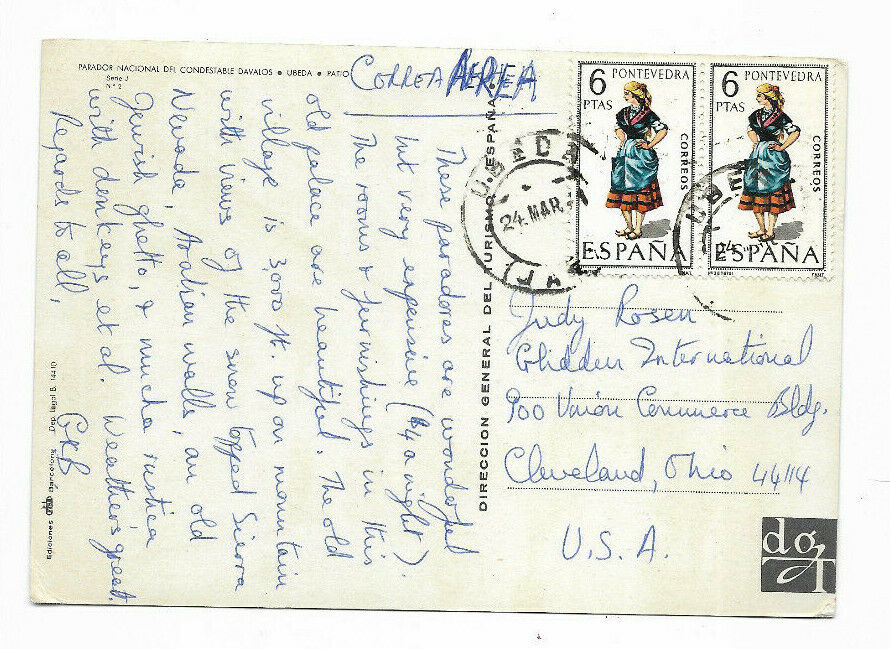 PARADOR NACIONAL DEL CONDESTABLE DAVALOS • UBEDA • PATIO
Serie J
Nº 2
CORREA AEREA
These paradores are wonderful
but very expensive ($4 a night).
The rooms & furnishings in this
old palace are beautiful. The old
village is 3,000 ft. up on mountain
with views of the snow topped Sierra
Nevada, Arabian walls, an old
Jewish ghetto, & mucha rustica
with donkeys et al. Weather's great.
Regards to all,
GKB
Ediciones Barcelona Dep. Legal B. 14410
DIRECCION GENERAL DEL TURISMO. ESPAÑA
6 PONTEVEDRA
PTAS
CORREOS
ESPAÑA
6 PONTEVEDRA
PTAS
CORREOS
ESPAÑA
UBEDA
24 MAR
(JAEN)
UBEDA
24
Judy Rosen
Glidden International
900 Union Commerce Bldg.
Cleveland, Ohio 44114
U.S.A.
dgT